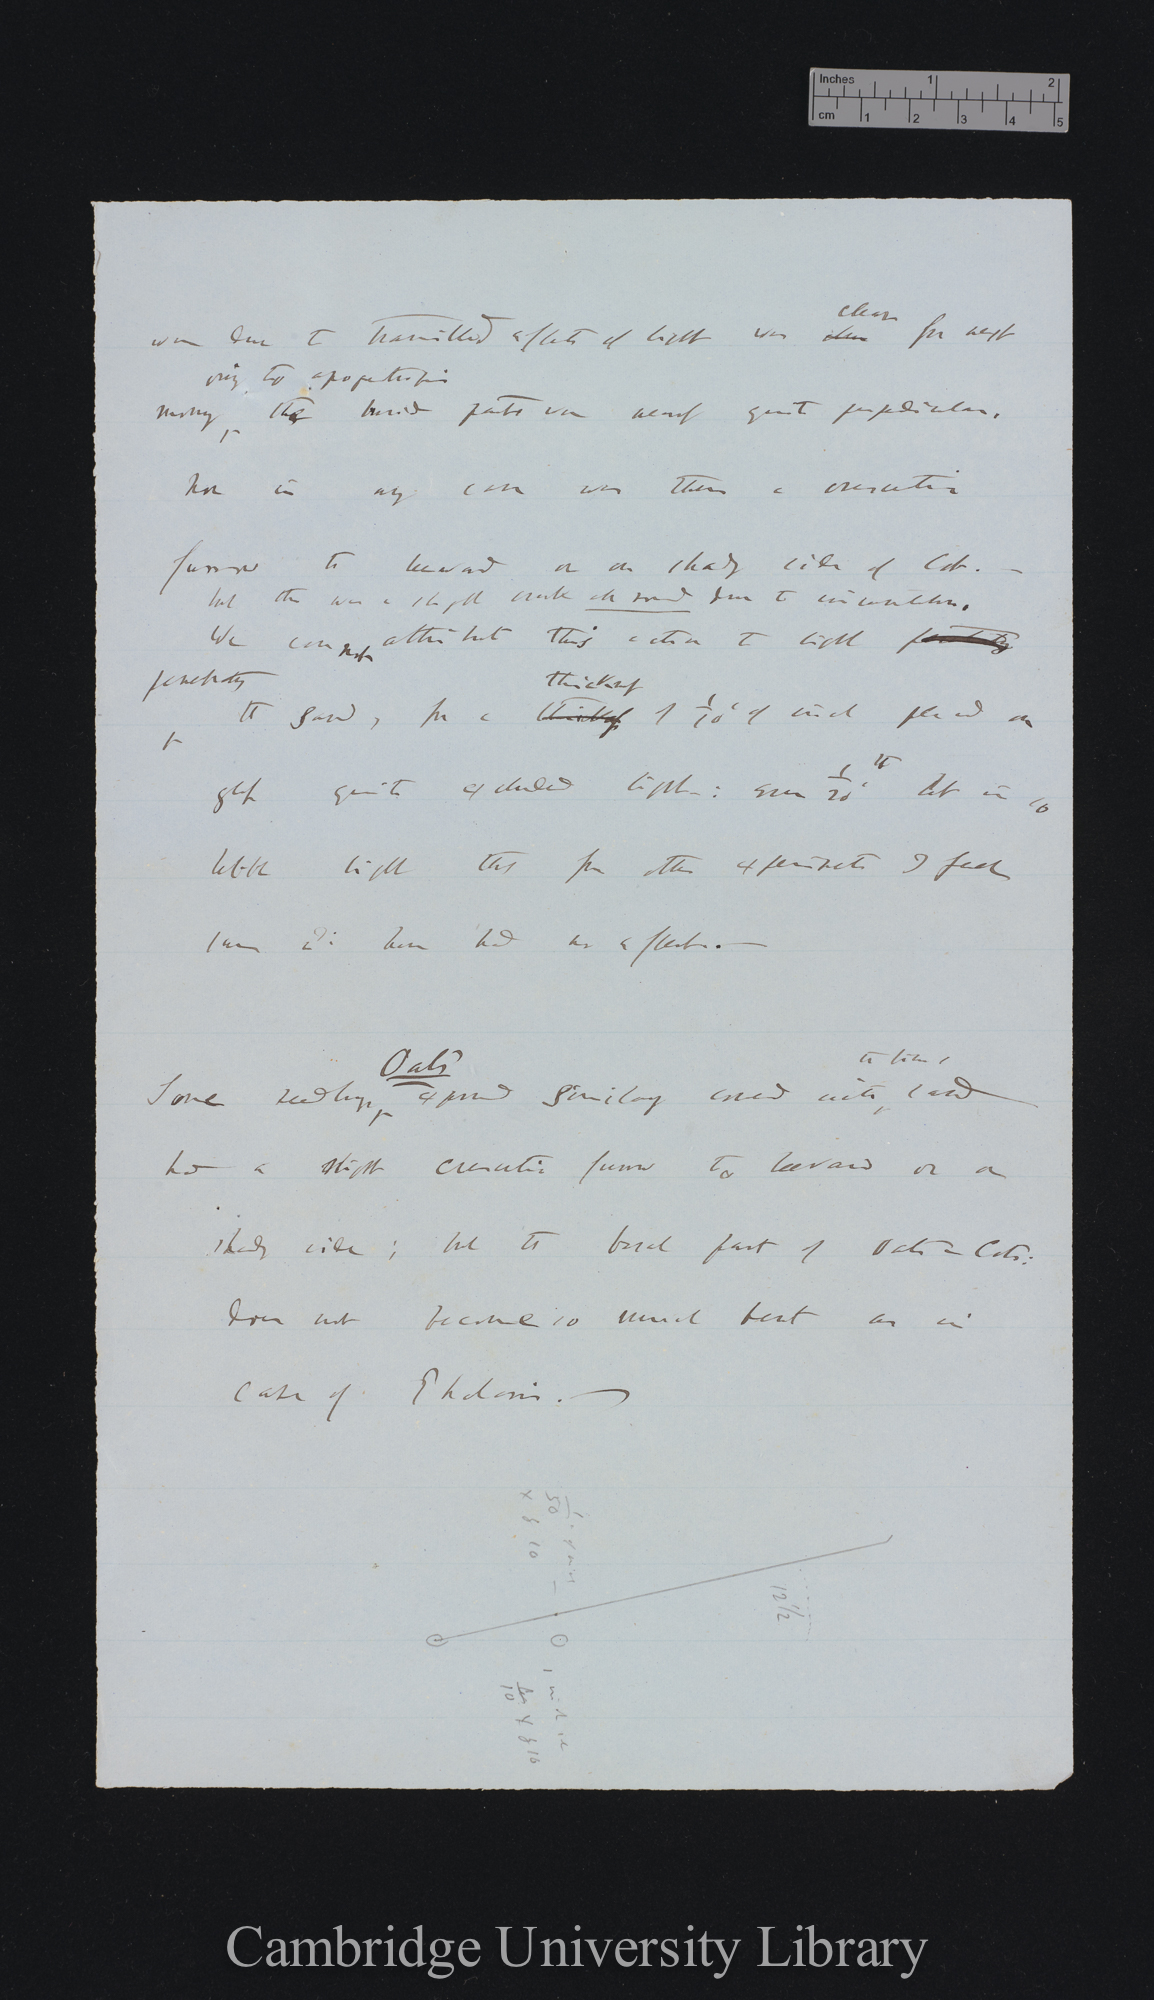 Inches 1 2
cm 1 2 3 4 5
clear
was due to transmitted effects of light was clear for next
owing to apogeotropism
morning the buried parts were almost quite perpendicular.
Nor in any case was there a crescentic
furrow to leeward or on shady side of Cot. —
but there was a slight crack all round due to circumnutation.
We cannot attribute this action to light penetrating
penetrating
thickness
the sand, for a thickness of 1/10 of inch placed on
glass quite excluded light: even 1/20 th let in so
little light that from other experiments I feel
sure it have had no effect. —
Oats
Some seedlings, exposed similarly covered with, sand
had a slight crescentic furrow to leeward or on
shady side; but the basal part of Oats Cots:
does not become so much bent as in
case of Phalaris. —
1
50
x 10
12 1/2
1 inch
10
Cambridge University Library